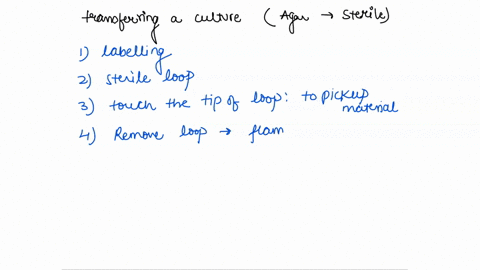 transferring a culture (Agar → sterile)
1) labelling
2) sterile loop
3) touch the tip of loop: to pickup material
4) Remove loop → flam